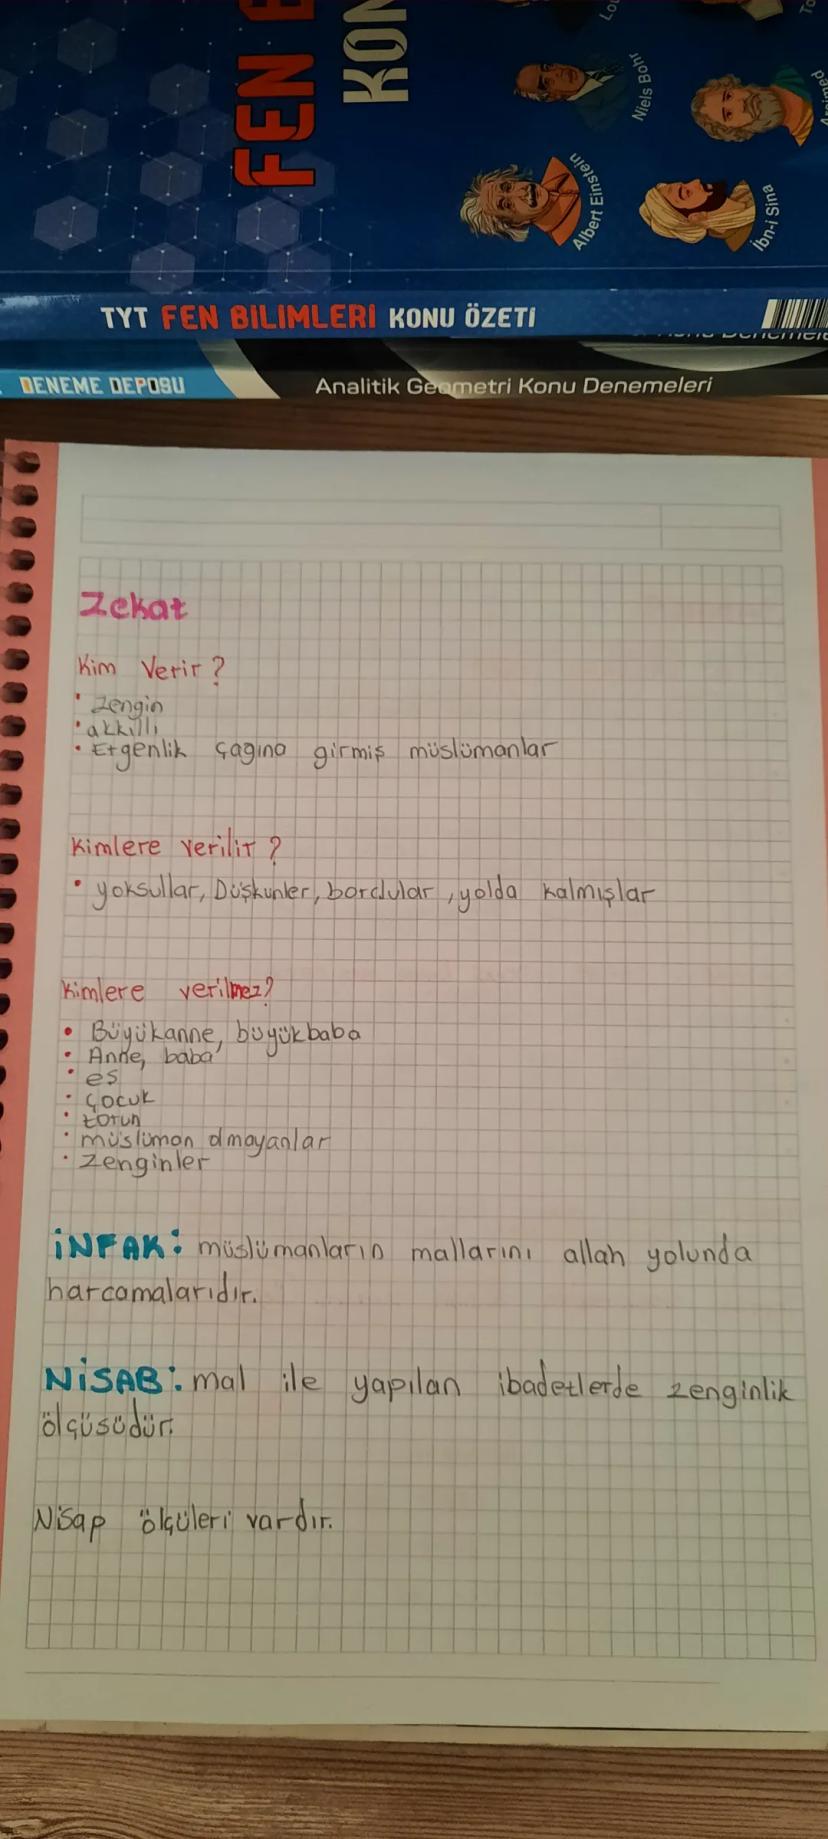 FEN
KON
Niels Bohr
Albert Einstein
İbn-i Sina
TYT FEN BİLİMLERİ KONU ÖZETİ
DENEME DEPOSU
Analitik Geometri Konu Denemeleri
Zekat
Kim Verir?
• Zengin
• akıllı
• Ergenlik çağına girmiş müslümanlar
Kimlere verilir?
• yoksullar, Düşkünler, borçlular, yolda kalmışlar
Kimlere verilmez?
• Büyükanne, büyükbaba
• Anne, baba
• eş
• Çocuk
• torun
• müslüman olmayanlar
• Zenginler
İNFAK: müslümanların mallarını allah yolunda
harcamalarıdır.
NİSAB: mal ile yapılan ibadetlerde zenginlik
ölçüsüdür.
Nisap ölçüleri vardır.